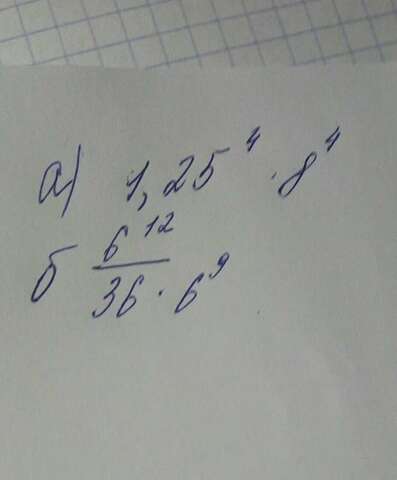 а) 1,25⁴ · 8⁴
б 6¹²
36 · 6⁹